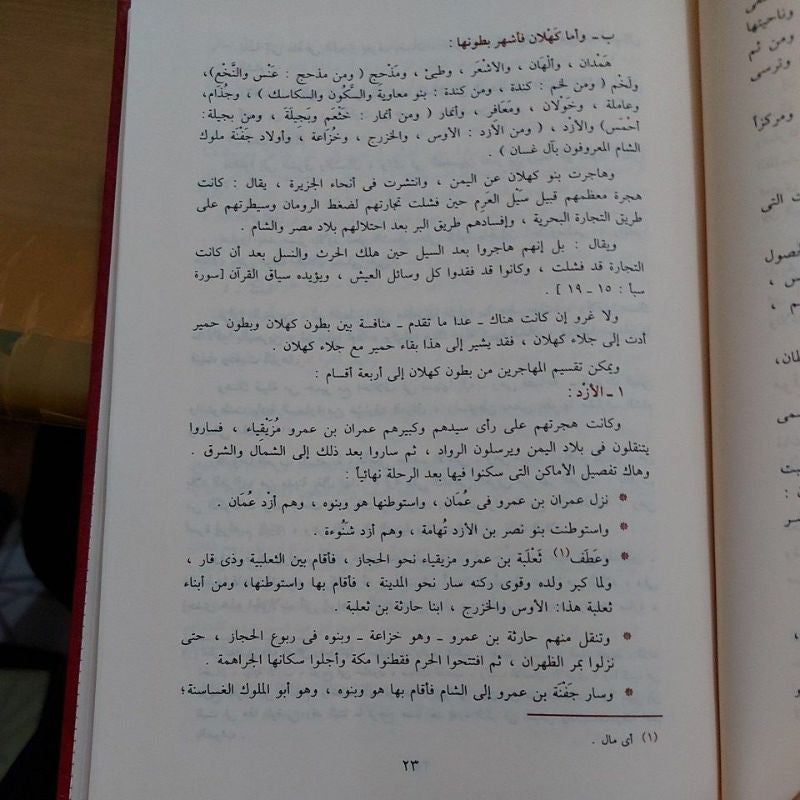 ب ـ وأما كَهْلان فأشهر بطونها :
هَمْدان ، وألهَان ، والأشْعَر ، وطيئ ، ومَذْحج ( ومن مذحج : عَنْس والنَّخْع)،
ولَخْم ( ومن لخم : كندة ، ومن كندة : بنو معاوية والسَّكُون والسكاسك ) ، وجُذَام،
وعاملة ، وخَوْلان ، ومَعَافر ، وأنمار ( ومن أنمار : خَثْعَم وبَجِيلَةَ ، ومن بجيلة :
أحْمَس) والأزْد ، ( ومن الأزد : الأوس ، والخزرج ، وخُزَاعة ، وأولاد جَفْنَة ملوك
الشام المعروفون بآل غسان ) .
وهاجرت بنو كهلان عن اليمن ، وانتشرت فى أنحاء الجزيرة ، يقال : كانت
هجرة معظمهم قبيل سَيْل العَرِم حين فشلت تجارتهم لضغط الرومان وسيطرتهم على
طريق التجارة البحرية ، وإفسادهم طريق البر بعد احتلالهم بلاد مصر والشام .
ويقال : بل إنهم هاجروا بعد السيل حين هلك الحرث والنسل بعد أن كانت
التجارة قد فشلت ، وكانوا قد فقدوا كل وسائل العيش ، ويؤيده سياق القرآن [سورة
سبأ : ١٥ ـ ١٩ ] .
ولا غرو إن كانت هناك ـ عدا ما تقدم ـ منافسة بين بطون كهلان وبطون حمير
أدت إلى جلاء كهلان ، فقد يشير إلى هذا بقاء حمير مع جلاء كهلان .
ويمكن تقسيم المهاجرين من بطون كهلان إلى أربعة أقسام :
١ ـ الأزْد :
وكانت هجرتهم على رأى سيدهم وكبيرهم عمران بن عمرو مُزَيْقِياء ، فساروا
يتنقلون فى بلاد اليمن ويرسلون الرواد ، ثم ساروا بعد ذلك إلى الشمال والشرق .
وهاك تفصيل الأماكن التى سكنوا فيها بعد الرحلة نهائياً :
* نزل عمران بن عمرو فى عُمَان ، واستوطنها هو وبنوه ، وهم أزْد عُمَان .
* واستوطنت بنو نصر بن الأزد تُهامة ، وهم أزد شَنُوءة .
* وعَطَف (١) ثَعْلَبة بن عمرو مزيقياء نحو الحجاز ، فأقام بين الثعلبية وذى قار ،
ولما كبر ولده وقوى ركنه سار نحو المدينة ، فأقام بها واستوطنها، ومن أبناء
ثعلبة هذا: الأوس والخزرج ، ابنا حارثة بن ثعلبة .
* وتنقل منهم حارثة بن عمرو ـ وهو خزاعة ـ وبنوه فى ربوع الحجاز ، حتى
نزلوا بمر الظهران ، ثم افتتحوا الحرم فقطنوا مكة وأجلوا سكانها الجراهمة .
* وسار جَفْنَة بن عمرو إلى الشام فأقام بها هو وبنوه ، وهو أبو الملوك الغساسنة؛
(١) أى مال .
٢٣
وناحيتها
ومن ثم
وترسى
ومركزاً
ت التى